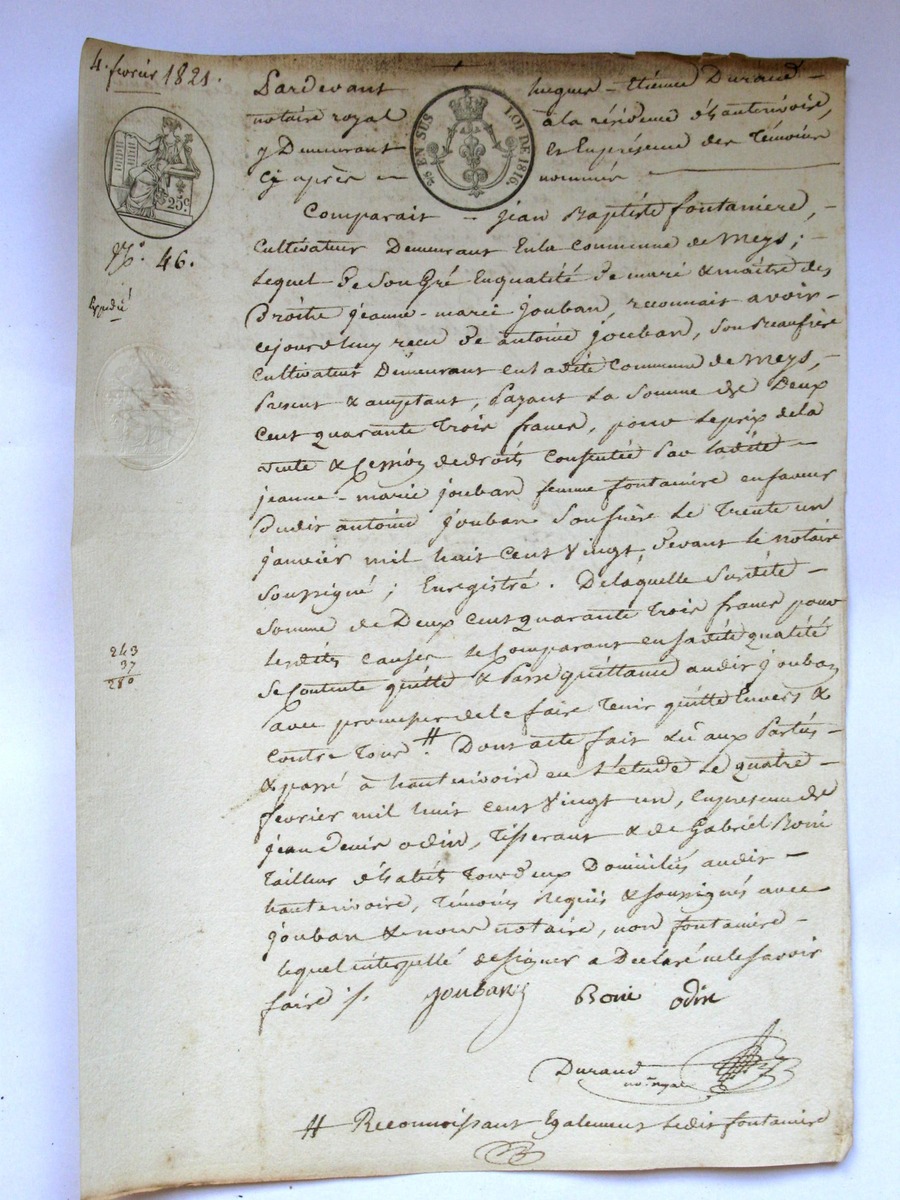 4. fevrier 1821.
Pardevant hugues-étienne Durand
notaire royal à la résidence d'hauterivoire,
y Demeurant & Enpresence des Témoins
Cy après nommés
25 EN SUS LOI DE 1816.
25c.
No. 46.
Expédié
Comparait jean Baptiste fontaniere,
Cultivateur Demeurant Enla Commune de Meys;
Lequel De Son Gré Enqualité De mari & maître des
Droits jeanne-marie jouban, reconnait avoir
cejourd'huy recu De antoine jouban, Son Beaufrère
Cultivateur Demeurant en Ladite Commune de Meys,
Present & acceptant, Payant La Somme de Deux
Cent quarante trois francs, pour Le prix de la
Vente & Cession de droits Consentie Par Ladite
jeanne-marie jouban femme fontaniere en faveur
Dudit antoine jouban Son frère Le Trente un
janvier mil huit Cent Vingt, Devant Le notaire
Soussigné; Enregistré. De laquelle Susdite
Somme de Deux Cent quarante trois francs pour
Lesdites causes Le Comparant en Sadite qualité
Se Contente quitte & Passe quittance audit jouban
avec promesse de le faire Tenir quitte Envers &
Contre Tous # Dont acte fait & Lu aux Parties
& passé à hauterivoire en L'etude Le quatre
fevrier mil huit Cent Vingt un, Enpresence de
jean Denis odin, Tisserant & de Gabriel Boni
Tailleur d'habits Tous Deux Domiciliés audit
hauterivoire, Témoins Requis & Soussignés avec
jouban & nous notaire, non fontaniere
Lequel interpellé de Signer a Declaré ne le Savoir
faire
243
37
280
jouban Boni odin
Durand
no. royal
# Reconnoissant Egalement Ledit fontaniere